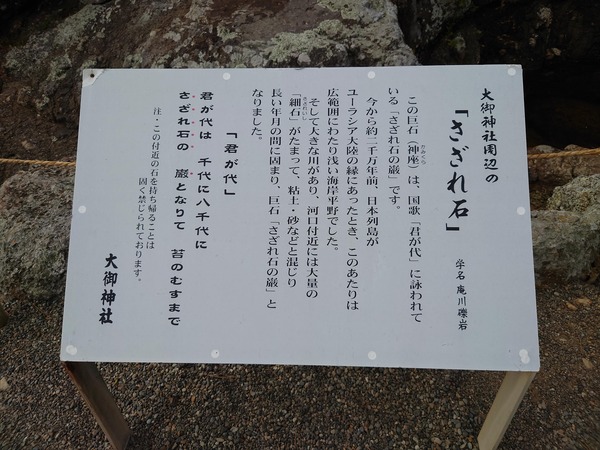 大御神社周辺の
「さざれ石」
学名 庵川礫岩
この巨石（神座）は、国歌「君が代」に詠われて
かみくら
いる「さざれ石の巌」です。
今から約二千万年前、日本列島が
ユーラシア大陸の縁にあったとき、このあたりは
広範囲にわたり浅い海岸平野でした。
そして大きな川があり、河口付近には大量の
「細石」がたまって、粘土・砂などと混じり
さざれいし
長い年月の間に固まり、巨石「さざれ石の巌」と
なりました。
「君が代」
君が代は 千代に八千代に
さざれ石の 巌となりて 苔のむすまで
注・この付近の石を持ち帰ることは
固く禁じられております。
大御神社